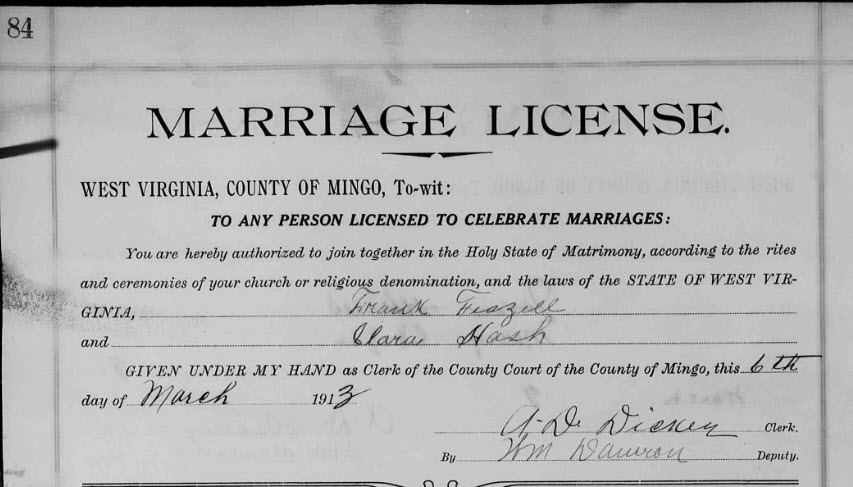 84
MARRIAGE LICENSE.
WEST VIRGINIA, COUNTY OF MINGO, To-wit:
TO ANY PERSON LICENSED TO CELEBRATE MARRIAGES:
You are hereby authorized to join together in the Holy State of Matrimony, according to the rites
and ceremonies of your church or religious denomination, and the laws of the STATE OF WEST VIR-
GINIA, Frank Frazell
and Clara Hash
GIVEN UNDER MY HAND as Clerk of the County Court of the County of Mingo, this 6th
day of March 1913
A. D. Dickey Clerk.
By Wm Dawson Deputy.